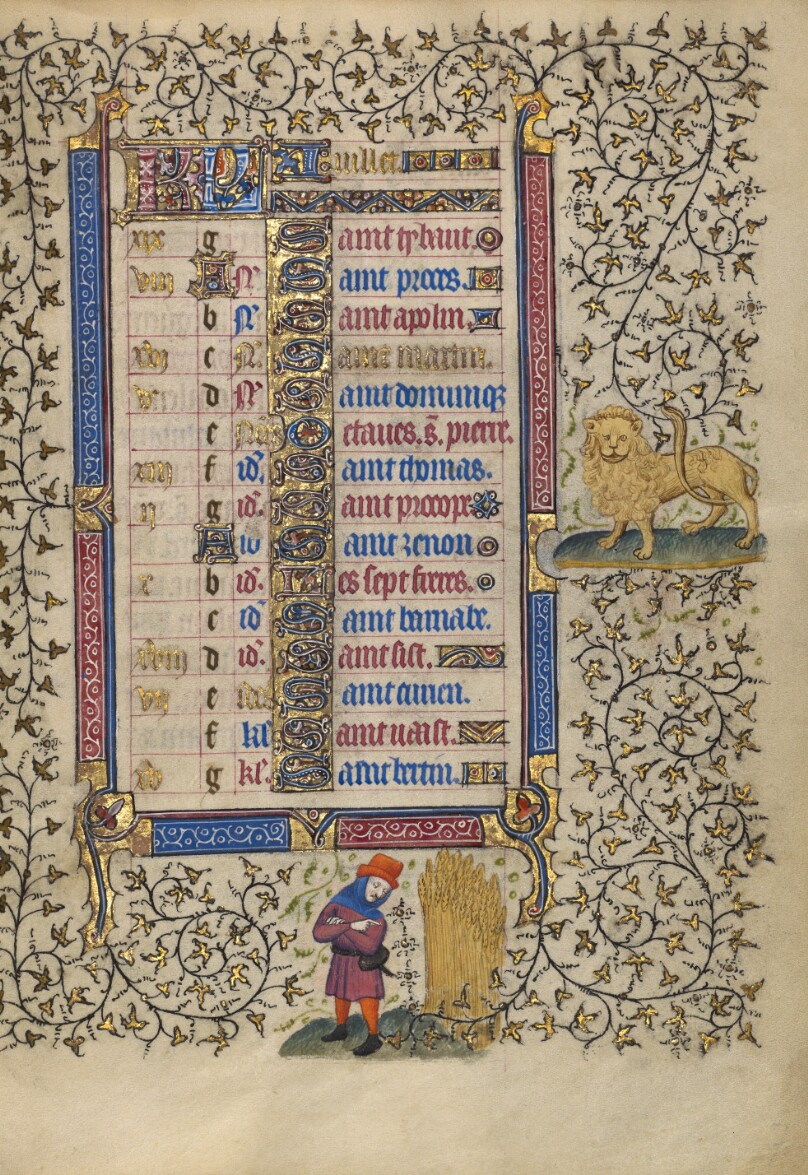 KL Juillet
xix g Saint tybaut.
viii A N. Saint proces.
b N. Saint apolin.
xvi c N. Saint martin.
v d N. Saint dominiq
e Octaues. s. pierre.
xiii f id. Saint thomas.
ii g id. Saint procope
A id Saint zenon
x b id. Les sept freres.
c id Saint barnabe.
xviii d id. Saint sict.
vii e Saint
f kl Saint uaast.
xv g kl. Saint bertin.